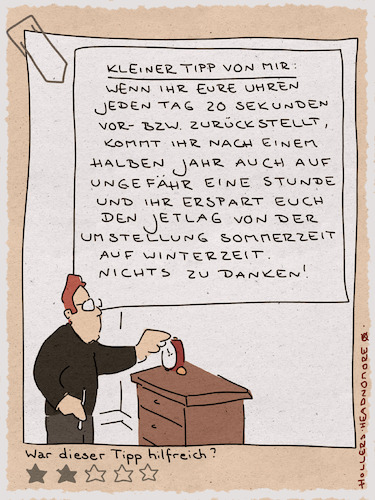 KLEINER TIPP VON MIR:
WENN IHR EURE UHREN
JEDEN TAG 20 SEKUNDEN
VOR- BZW. ZURÜCKSTELLT,
KOMMT IHR NACH EINEM
HALBEN JAHR AUCH AUF
UNGEFÄHR EINE STUNDE
UND IHR ERSPART EUCH
DEN JETLAG VON DER
UMSTELLUNG SOMMERZEIT
AUF WINTERZEIT.
NICHTS ZU DANKEN!
HOLLERS.HEADNOMORE
War dieser Tipp hilfreich?